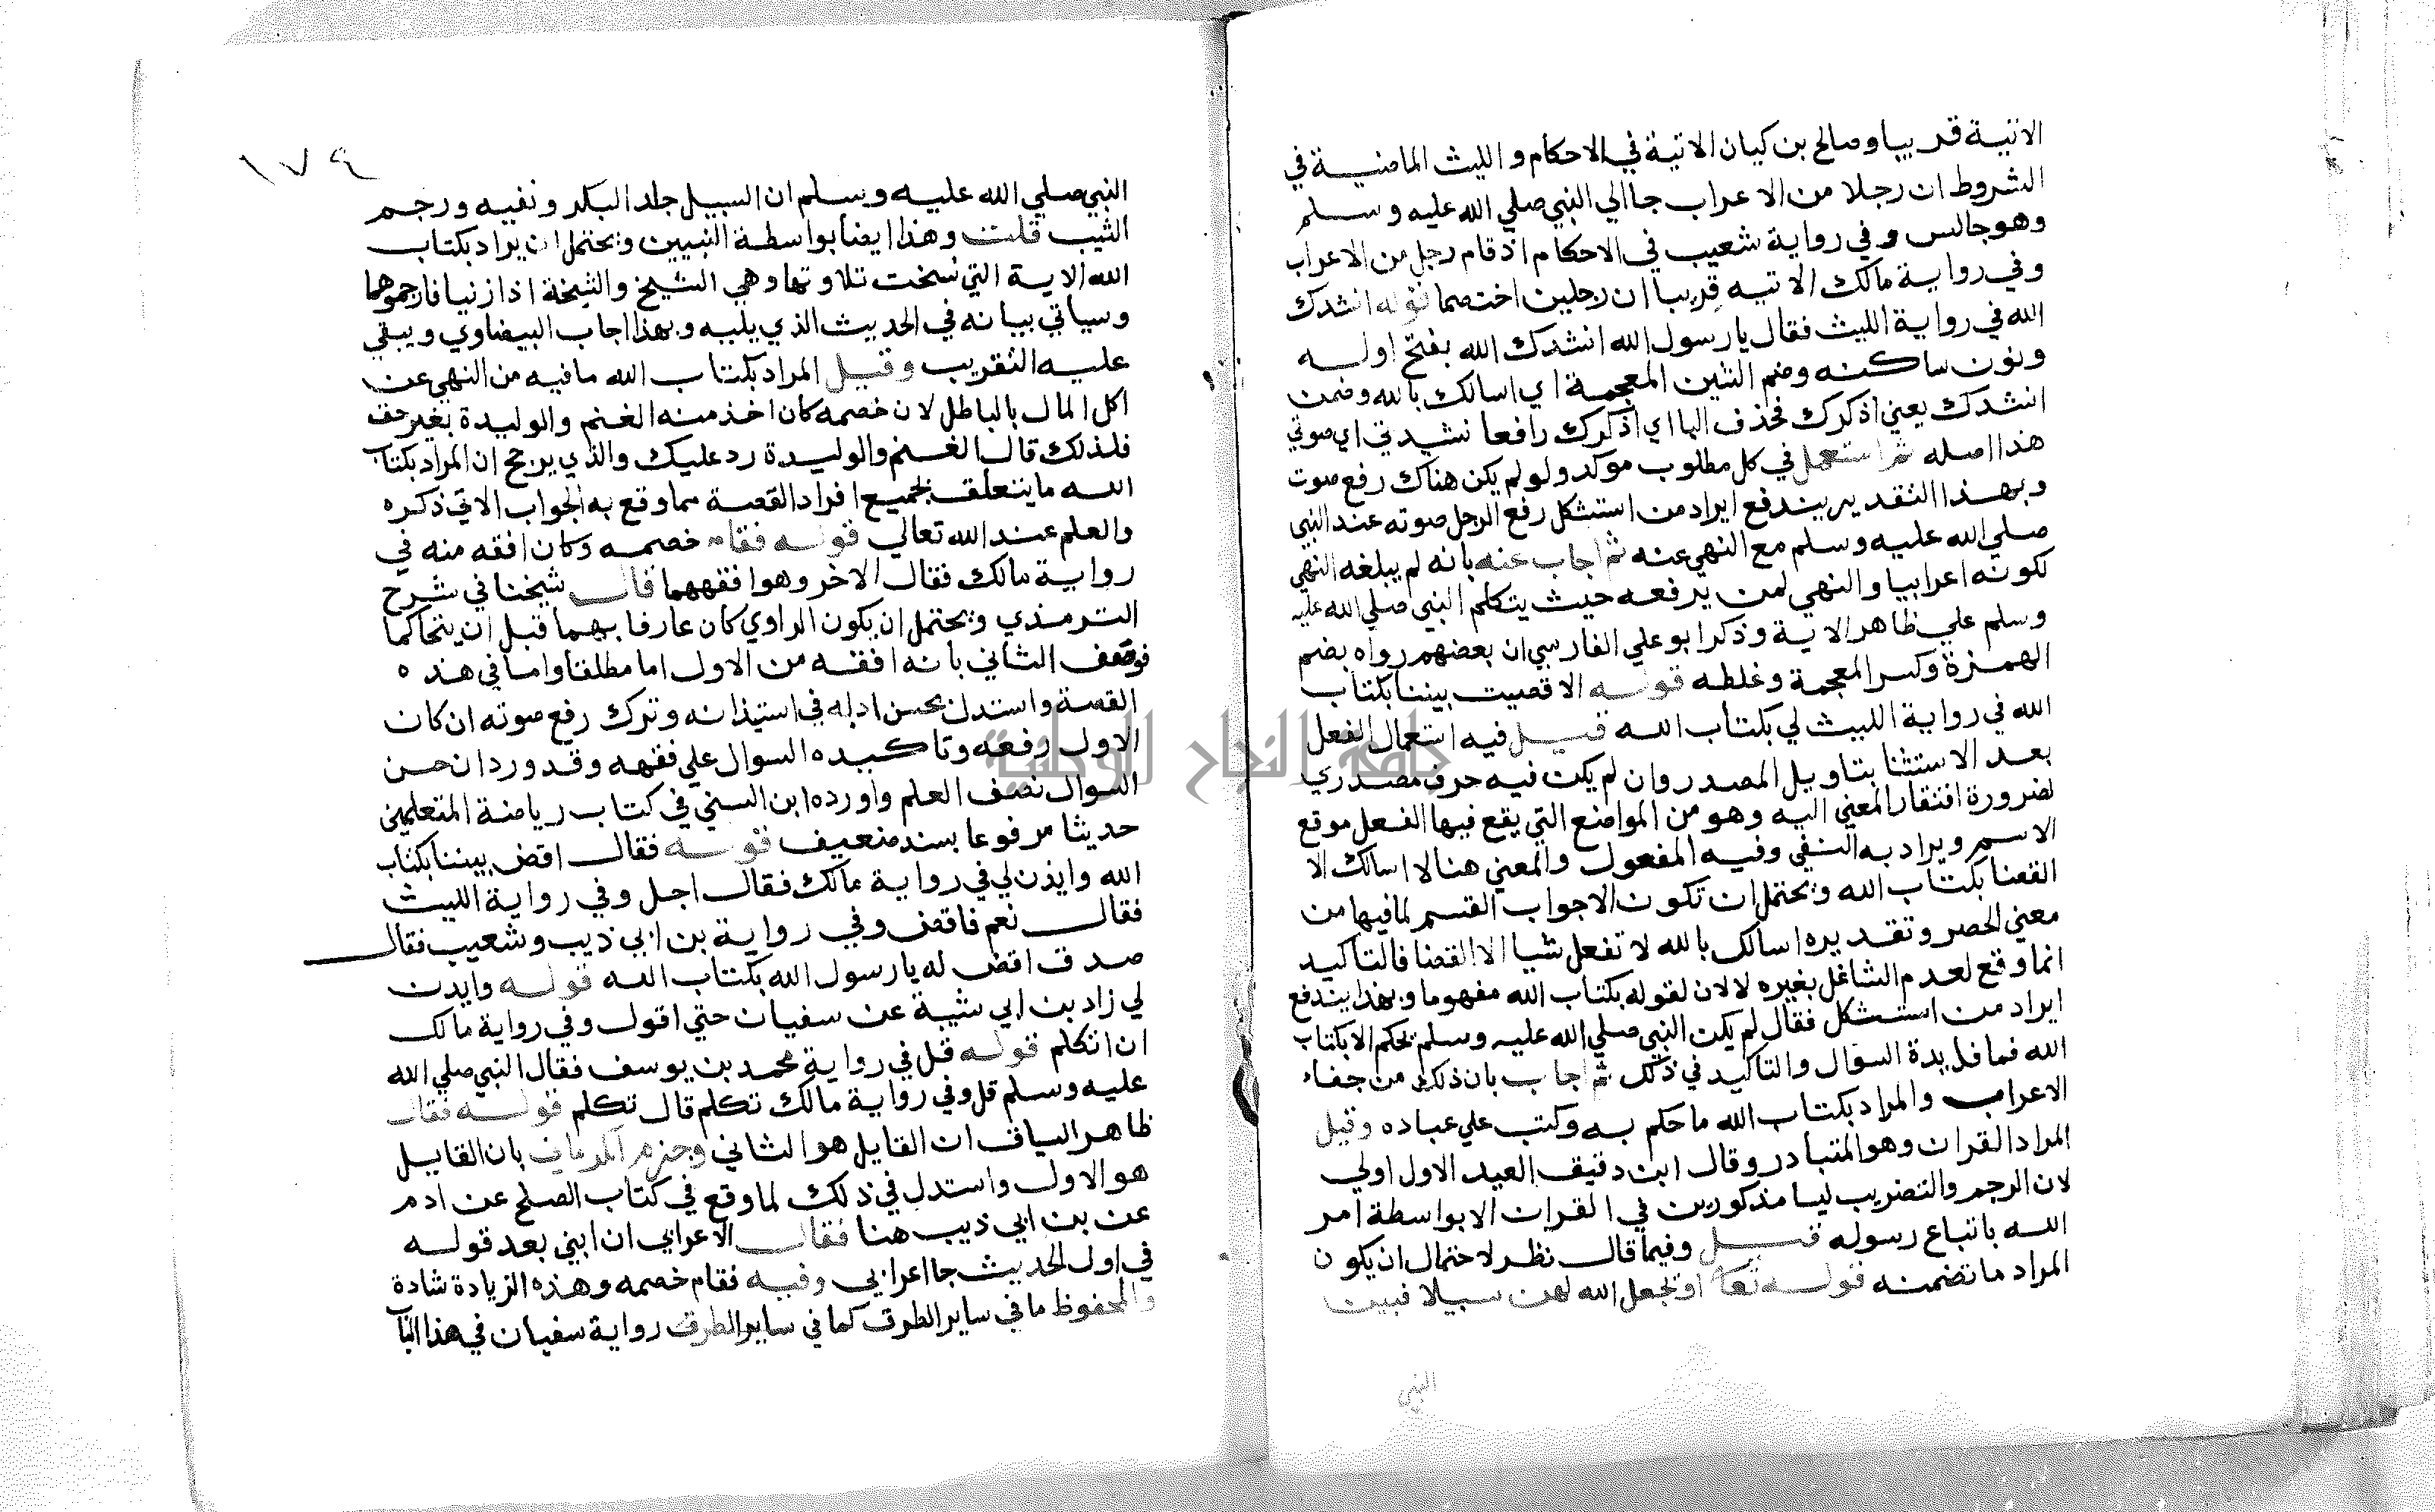 الاتية قريبا وصالح بن كيسان الاتية في الاحكام والليث الماضية في
الشروط ان رجلا من الاعراب جا الي النبي صلي الله عليه وسلم
وهو جالس وفي رواية شعيب في الاحكام اذ قام رجل من الاعراب
وفي رواية مالك الاتيه قريبا ان رجلين اختصما قوله انشدك
الله في رواية الليث فقال يا رسول الله انشدك الله بفتح اوله
ونون ساكنه وضم الشين المعجمة اي اسالك بالله وضمن
انشدك يعني اذكرك فحذف البا اي اذكرك رافعا نشيدتي اي صوتي
هذا اصله ثم استعمل في كل مطلوب موكد ولو لم يكن هناك رفع صوت
وبهذا التقدير يندفع ايراد من استشكل رفع الرجل صوته عند النبي
صلي الله عليه وسلم مع النهي عنه ثم اجاب عنه بانه لم يبلغه النهي
لكونه اعرابيا والنهي لمن يرفعه حيث يتكلم النبي صلي الله عليه
وسلم علي ظاهر الاية وذكر ابو علي الفارسي ان بعضهم رواه بضم
الهمزة وكسر المعجمة وغلطه قوله الا قضيت بيننا بكتاب
الله في رواية الليث لي بكتاب الله قيل فيه استعمال الفعل
بعد الاستثنا بتاويل المصدر وان لم يكن فيه حرف مصدري
لضرورة افتقار المعني اليه وهو من المواضع التي يقع فيها الفعل موقع
الاسم ويراد به النفي وفيه المفعول والمعني هنا لا اسالك الا
القضا بكتاب الله ويحتمل ان تكون الا جواب القسم لما فيها من
معني الحصر وتقديره اسالك بالله لا تفعل شيا الا القضا فالتاكيد
انما وقع لعدم التشاغل بغيره لا لان لقوله بكتاب الله مفهوما وبهذا يندفع
ايراد من استشكل فقال لم يكن النبي صلي الله عليه وسلم يحكم الا بكتاب
الله فما فايدة السؤال والتاكيد في ذلك ثم اجاب بان ذلك من جفاء
الاعراب والمراد بكتاب الله ما حكم به وكتب علي عباده وقيل
المراد القران وهو المتبادر وقال ابن دقيق العيد الاول اولي
لان الرجم والتضريب ليسا مذكورين في القران الا بواسطة امر
الله باتباع رسوله قيل وفيما قال نظر لاحتمال ان يكون
المراد ما تضمنه قوله تعا او يجعل الله لهن سبيلا فبين
النبي
١٧٤
النبي صلي الله عليه وسلم ان السبيل جلد البكر ونفيه ورجم
الثيب قلت وهذا ايضا بواسطة التبيين ويحتمل ان يراد بكتاب
الله الاية التي نسخت تلاوتها وهي الشيخ والشيخة اذا زنيا فارجموهما
وسياتي بيانه في الحديث الذي يليه وبهذا اجاب البيضاوي ويبقي
عليه التقريب وقيل المراد بكتاب الله ما فيه من النهي عن
اكل المال بالباطل لان خصمه كان اخذ منه الغنم والوليدة بغير حق
فلذلك قال الغنم والوليدة رد عليك والذي يرجح ان المراد بكتاب
الله ما يتعلق بجميع افراد القصة مما وقع به الجواب الاتي ذكره
والعلم عند الله تعالي قوله فقام خصمه وكان افقه منه في
رواية مالك فقال الاخر وهو افقههما قال شيخنا في شرح
الترمذي ويحتمل ان يكون الراوي كان عارفا بهما قبل ان يتحاكما
فوصف الثاني بانه افقه من الاول اما مطلقا واما في هذه
القصة واستدل بحسن ادبه في استيذانه وترك رفع صوته ان كان
الاول رفعه وتاكيده السوال علي فقهه وقد ورد ان حسن
السوال نصف العلم واورده ابن السني في كتاب رياضة المتعلمين
حديثا مرفوعا بسند ضعيف قوله فقال اقض بيننا بكتاب
الله وايذن لي في رواية مالك فقال اجل وفي رواية الليث
فقال نعم فاقض وفي رواية بن ابي ذيب وشعيب فقال
صدق اقض له يا رسول الله بكتاب الله قوله وايذن
لي زاد بن ابي شيبة عن سفيان حتي اقول وفي رواية مالك
ان اتكلم قوله قل في رواية محمد بن يوسف فقال النبي صلي الله
عليه وسلم قل وفي رواية مالك تكلم قال تكلم قوله فقال
ظاهر السياق ان القايل هو الثاني وجزم الكرماني بان القايل
هو الاول واستدل في ذلك لما وقع في كتاب الصلح عن ادم
عن بن ابي ذيب هنا فقال الاعرابي ان ابني بعد قوله
في اول الحديث جا اعرابي وفيه فقام خصمه وهذه الزيادة شاذة
والمحفوظ ما في ساير الطرق كما في ساير الطرق رواية سفيان في هذا الباب
جامعة النجاح الوطنية